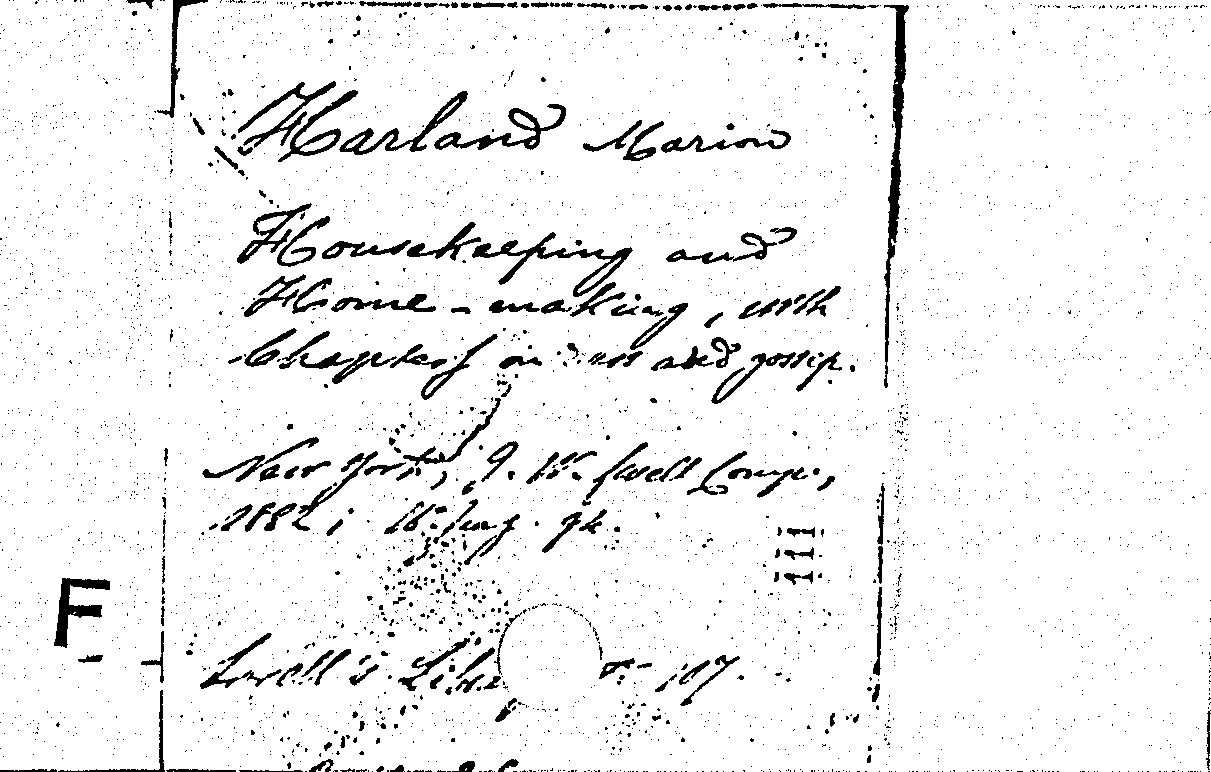 Harland Marion
Housekeeping and
Home-making, with
Chapters on and gossip.
New York, J. W. Lovell Comp.,
1882;
111
F
Lovell's 107.